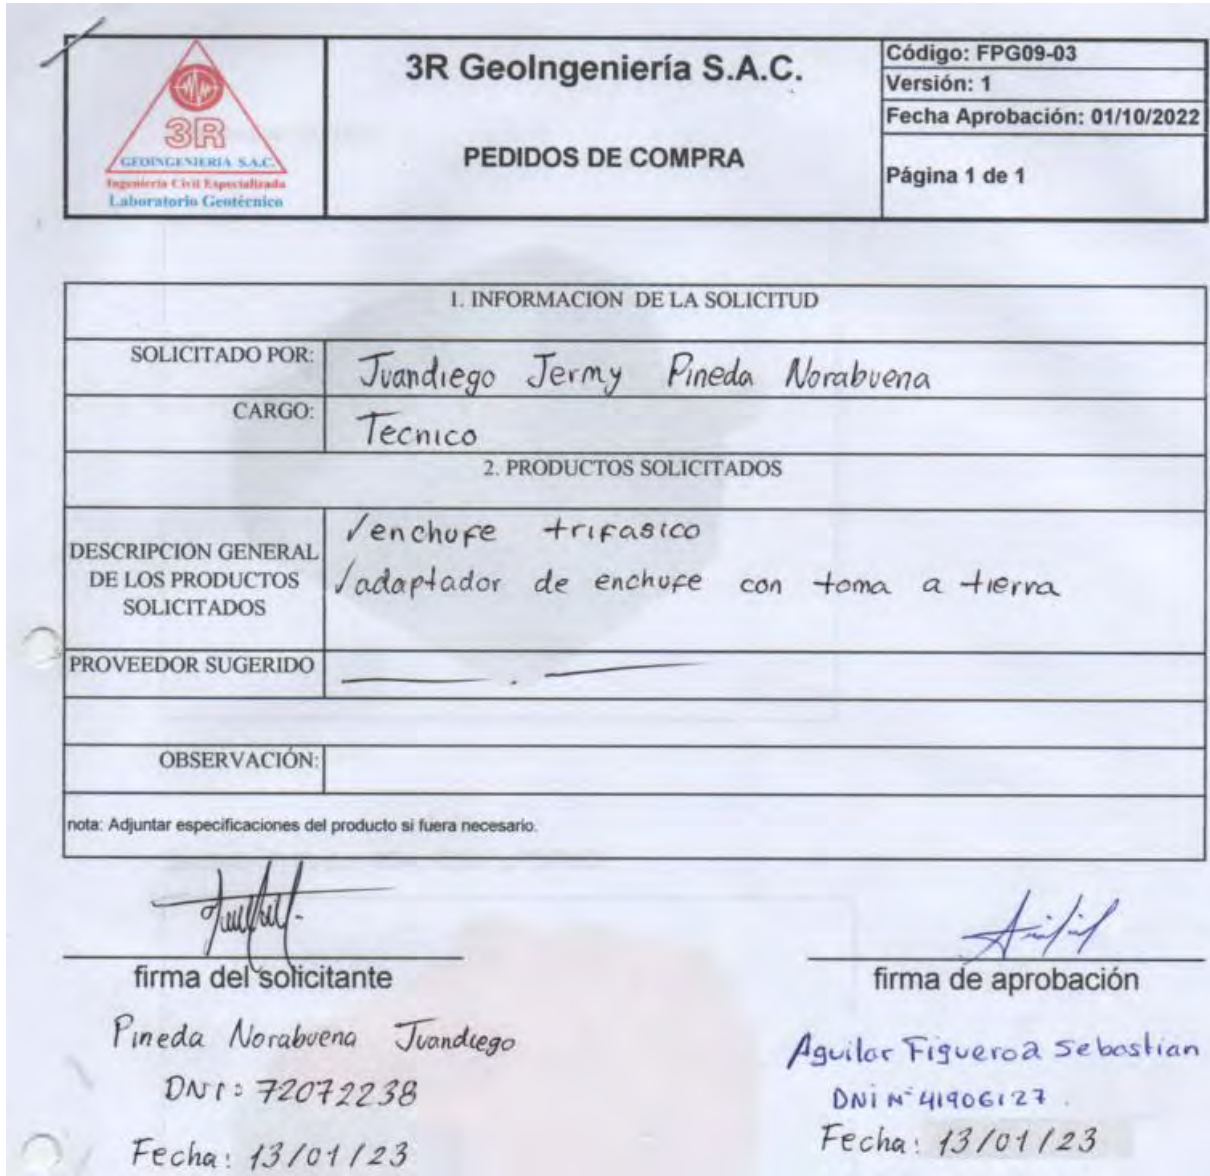 3R
GEOINGENIERIA S.A.C.
Ingeniería Civil Especializada
Laboratorio Geotécnico
3R GeoIngeniería S.A.C.
PEDIDOS DE COMPRA
Código: FPG09-03
Versión: 1
Fecha Aprobación: 01/10/2022
Página 1 de 1
1. INFORMACION DE LA SOLICITUD
SOLICITADO POR: Juandiego Jermy Pineda Norabuena
CARGO: Tecnico
2. PRODUCTOS SOLICITADOS
DESCRIPCION GENERAL
DE LOS PRODUCTOS
SOLICITADOS
✓enchufe trifasico
✓adaptador de enchufe con toma a tierra
PROVEEDOR SUGERIDO
OBSERVACIÓN:
nota: Adjuntar especificaciones del producto si fuera necesario.
firma del solicitante
Pineda Norabuena Juandiego
DNI: 72072238
Fecha: 13/01/23
firma de aprobación
Aguilar Figueroa Sebastian
DNI N° 41906127.
Fecha: 13/01/23